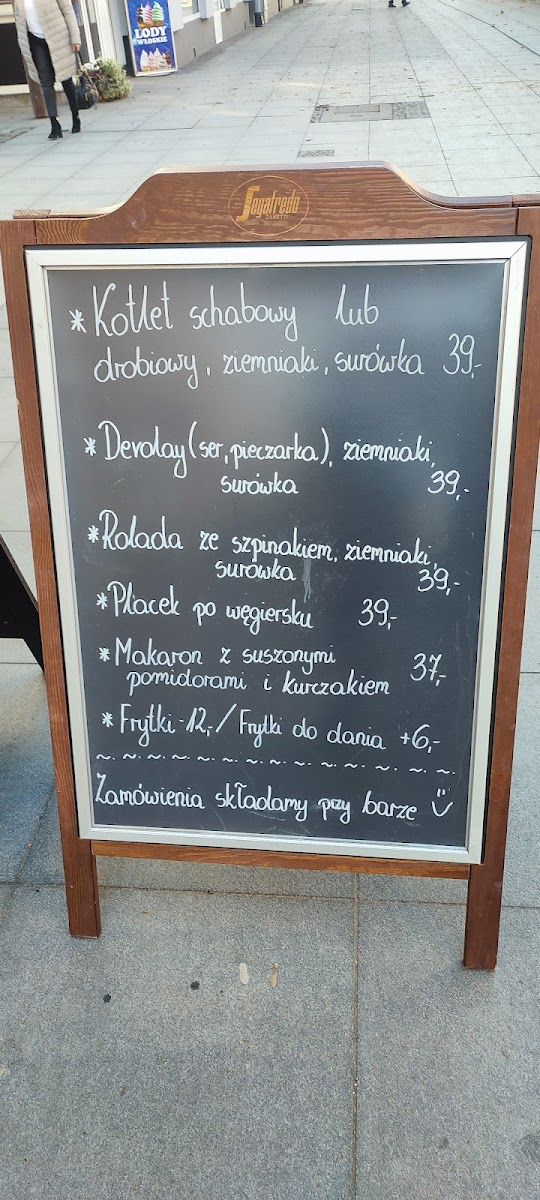 LODY
WŁOSKIE
Segafredo
ZANETTI
* Kotlet schabowy lub
drobiowy, ziemniaki, surówka 39,-
* Devolay (ser, pieczarka), ziemniaki,
surówka 39,-
* Rolada ze szpinakiem, ziemniaki,
surówka 39,-
* Placek po węgiersku 39,-
* Makaron z suszonymi
pomidorami i kurczakiem 37,-
* Frytki - 12,- / Frytki do dania +6,-
Zamówienia składamy przy barze